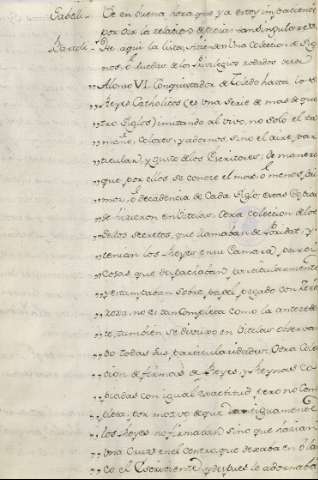 Gabell. Ee en buena hora, que ya estoy impaciente
por oir la relacion de piezas tan singulares.
De aqui la lista, viene en Una Coleccion de Sig-
nos, ò ruedas de los Privilegios rodados desde
„ Alonso VI. Conquistador de Toledo hasta los
„ Reyes Catholicos (es Una Serie de mas de qua-
„ tro Siglos) imitando al vivo, no solo el ta-
„ maño, colores, y adornos, sino el aire, par-
„ ticular, y gusto de los Escritores; de manera
„ que por ellos se conoce el mas, ò menos, pri-
„ mor, ò decadencia de Cada Siglo: estas Copias
„ se hicieron en Vitelas. Otra coleccion de los
„ sellos secretos, que llamaban de Poridat, y
„ tenian los Reyes en su Camara, para
„ Cosas que despachaban particularmente
„ y estampaban sobre papel pegado con
„ no es tan Completa como la antece-
„ te, tambien se dibuxo en Vitelas observan-
„ do todas sus particularidades. Otra Colec-
„ cion de firmas de Reyes, y Reynas co-
„ piadas con igual exactitud, pero no Com-
„ pleta, por motivo de que antiguamente
„ los Reyes no firmaban, sino que hacian
„ Una Cruz en el centro, que dexaba en blan-
„ co el Escribiente, y despues le adornaba